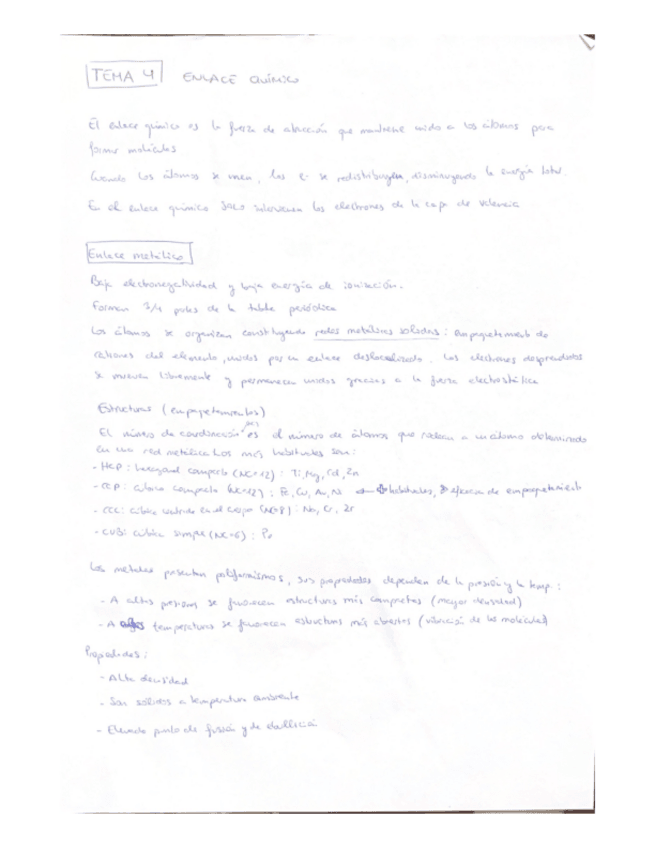 TEMA 4 ENLACE QUÍMICO
El enlace químico es la fuerza de atracción que mantiene unido a los átomos para
formar moléculas
Cuando los átomos se unen, los e- se redistribuyen, disminuyendo la energía total.
En el enlace químico SOLO intervienen los electrones de la capa de valencia
Enlace metálico
Baja electronegatividad y baja energía de ionización.
Forman 3/4 partes de la tabla periódica
Los átomos se organizan constituyendo redes metálicas sólidas: empaquetamiento de
cationes del elemento, unidos por un enlace deslocalizado. Los electrones desprendidos
se mueven libremente y permanecen unidos gracias a la fuerza electrostática
Estructuras (empaquetamientos)
El número de coordinación (NC) es el número de átomos que rodean a un átomo determinado
en una red metálica. Los más habituales son:
- HCP: hexagonal compacto (NC=12): Ti, Mg, Cd, Zn
- CCP: cúbico compacto (NC=12): Fe, Cu, Au, Ni ← + habituales, > eficacia de empaquetamiento
- CCC: cúbica centrada en el cuerpo (NC=8): Na, Cr, Zr
- CUB: cúbica simple (NC=6): Po
Los metales presentan polimorfismos, sus propiedades dependen de la presión y la temp:
- A altas presiones se favorecen estructuras más compactas (mayor densidad)
- A temperaturas se favorecen estructuras más abiertas (vibración de las moléculas)
Propiedades:
- Alta densidad
- Son sólidos a temperatura ambiente
- Elevado punto de fusión y de ebullición